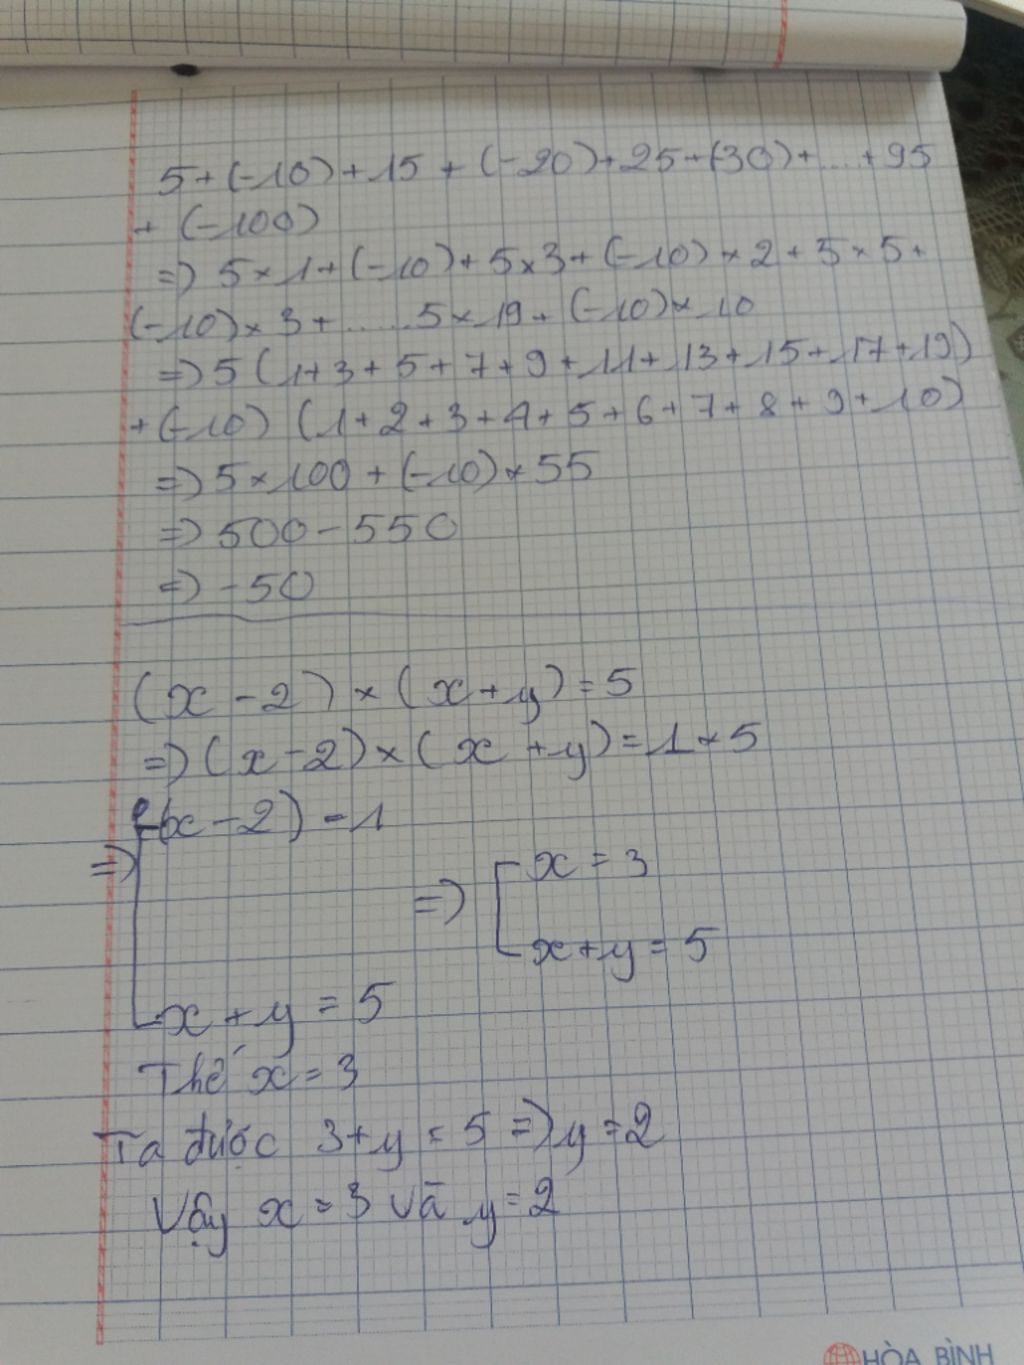 5+(-10)+15+(-20)+25+(-30)+....+95
+ (-100)
=> 5×1+(-10)+5×3+(-10)×2+5×5+
(-10)×3+......5×19+(-10)×10
=> 5(1+3+5+7+9+11+13+15+17+19)
+(-10) (1+2+3+4+5+6+7+8+9+10)
=> 5×100+(-10)×55
=> 500-550
=> -50
(x-2)×(x+y)=5
=> (x-2)×(x+y)=1×5
=> [(x-2)=1
x+y=5
=> [x=3
x+y=5
Thế x=3
Ta được 3+y=5 => y=2
Vậy x=3 và y=2
HÒA BÌNH